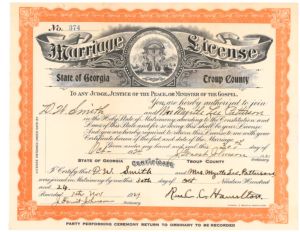 No. 374
Marriage License
State of Georgia Troup County
TO ANY JUDGE, JUSTICE OF THE PEACE, OR MINISTER OF THE GOSPEL.
You are hereby authorized to join
D. W. Smith and Mrs Myrtle Lee Patterson
in the Holy State of Matrimony according to the Constitution and
Laws of this State and for so doing this shall be your License.
And you are hereby required to return this License to me with your
Certificate hereon of the fact and date of the Marriage.
Given under my hand and seal this 30th day of
Oct
STATE OF GEORGIA Certificate
I Certify that D. W. Smith and Mrs. Myrtle Lee Patterson
were joined in Matrimony by me this 30th day of Oct Nineteen Hundred
and 24.
Recorded Nov Rush C. Hamilton,
PARTY PERFORMING CEREMONY RETURN TO ORDINARY TO BE RECORDED